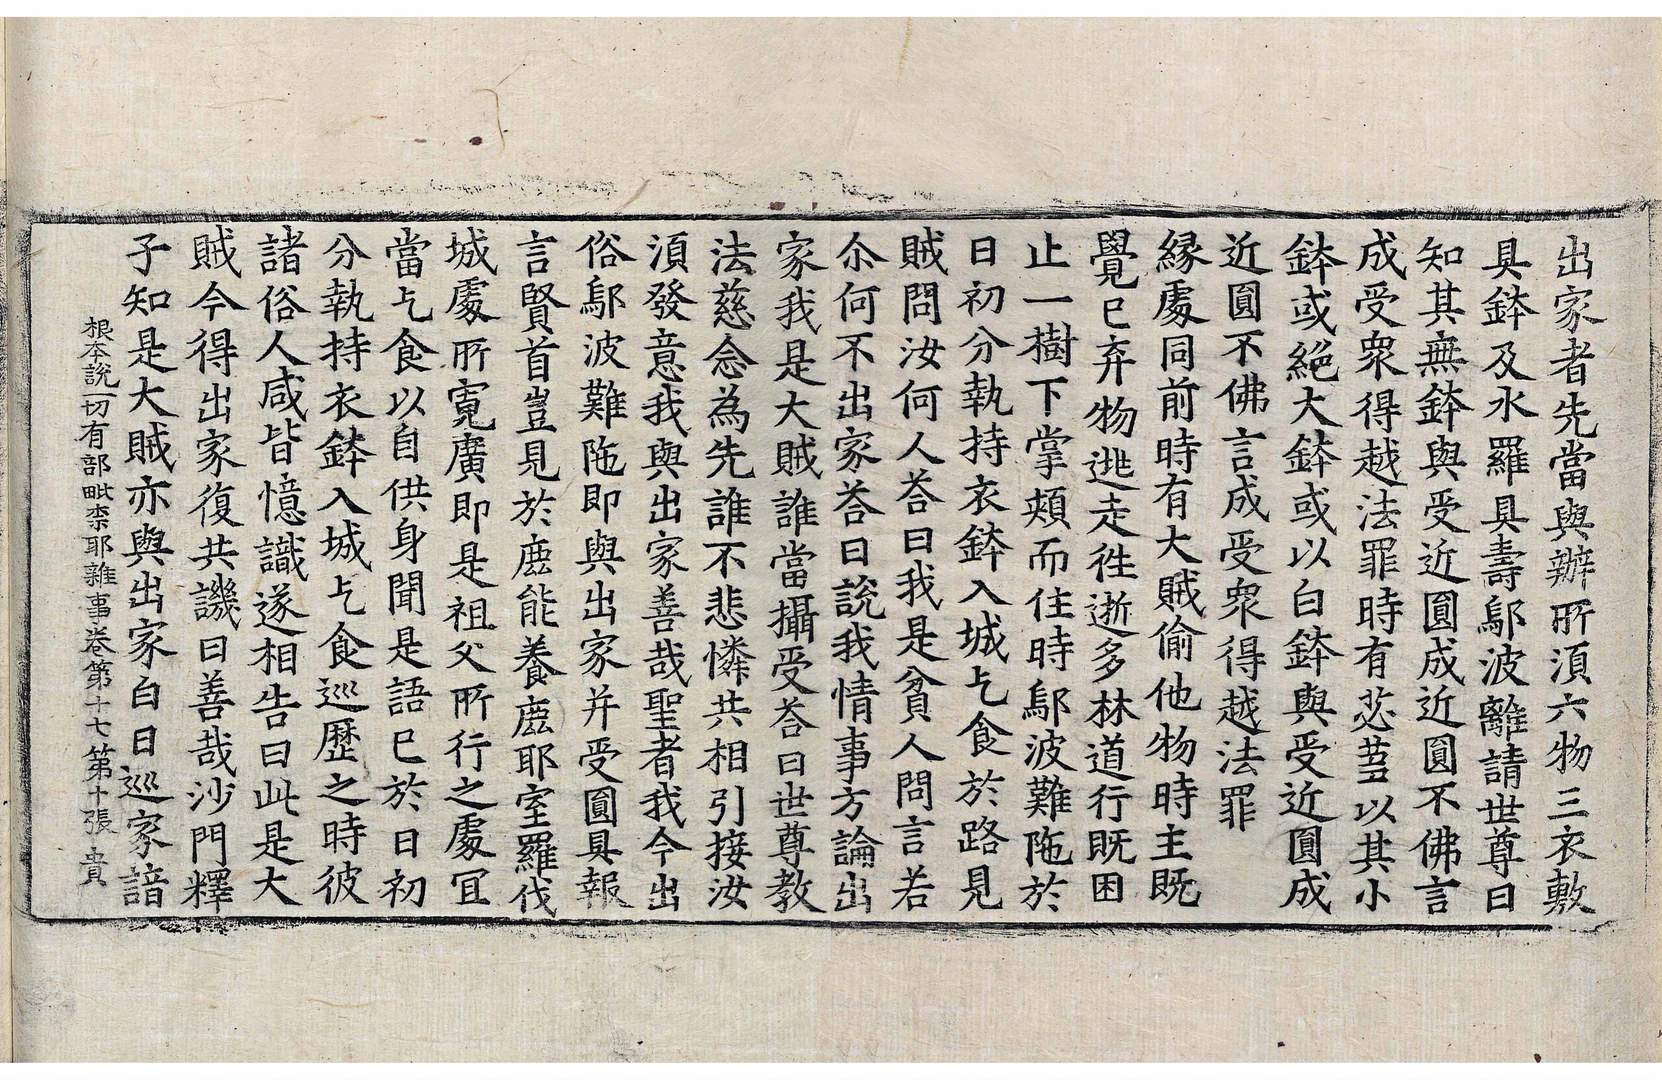 出家者先當與辦所須六物三衣敷
具鉢及水羅具壽鄔波離請世尊曰
知其無鉢與受近圓成近圓不佛言
成受衆得越法罪時有苾蒭以其小
鉢或絕大鉢或以白鉢與受近圓成
近圓不佛言成受衆得越法罪
緣處同前時有大賊偷他物時主既
覺已弃物逃走徃逝多林道行既困
止一樹下掌頰而住時鄔波難陁於
日初分執持衣鉢入城乞食於路見
賊問汝何人荅曰我是貧人問言若
尒何不出家荅曰說我情事方論出
家我是大賊誰當攝受荅曰世尊教
法慈念為先誰不悲憐共相引接汝
湏發意我與出家善哉聖者我今出
俗鄔波難陁即與出家并受圓具報
言賢首豈見於鹿能養鹿耶室羅伐
城處所寬廣即是祖父所行之處冝
當乞食以自供身聞是語已於日初
分執持衣鉢入城乞食巡歷之時彼
諸俗人咸皆憶識遂相告曰此是大
賊今得出家復共譏曰善哉沙門釋
子知是大賊亦與出家白日巡家諳
根夲說一切有部毗柰耶雜事卷第十七第十張 貴